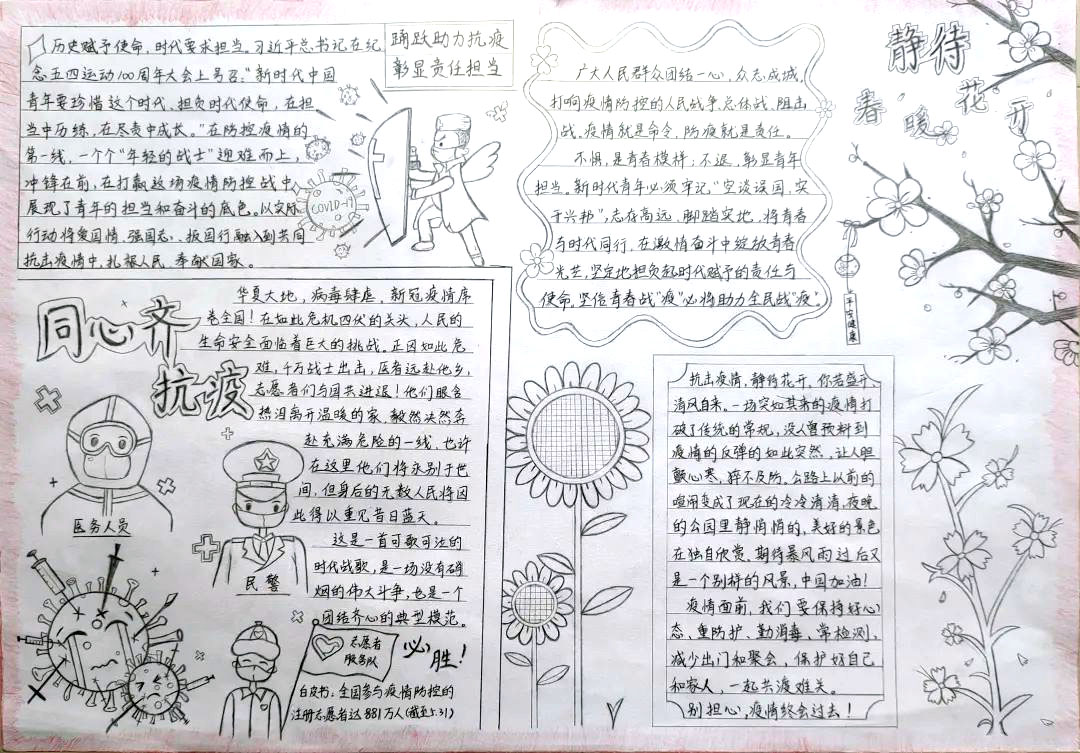 踊跃助力抗疫
彰显责任担当
历史赋予使命，时代要求担当。习近平总书记在纪
念五四运动100周年大会上号召，“新时代中国
青年要珍惜这个时代、担负时代使命，在担
当中历练，在尽责中成长。”在防控疫情的
第一线，一个个“年轻的战士”迎难而上，
冲锋在前，在打赢这场疫情防控战中，
展现了青年的担当和奋斗的底色。以实际
行动将爱国情、强国志、报国行融入到共同
抗击疫情中，扎根人民，奉献国家。
COVID-19
广大人民群众团结一心，众志成城，
打响疫情防控的人民战争、总体战、阻击
战。疫情就是命令，防疫就是责任。
不惧，是青春模样；不退，彰显青年
担当。新时代青年必须牢记“空谈误国，实
干兴邦”，志存高远、脚踏实地，将青春
与时代同行，在激情奋斗中绽放青春
光芒，坚定地担负起时代赋予的责任与
使命，坚信青春战“疫”必将助力全民战“疫”。
静待
春暖花开
平安健康
同心齐
抗疫
华夏大地，病毒肆虐，新冠疫情席
卷全国！在如此危机四伏的关头，人民的
生命安全面临着巨大的挑战。正因如此危
难，千万战士出击，医者远赴他乡，
志愿者们与国共进退！他们眼含
热泪离开温暖的家，毅然决然奔
赴充满危险的一线，也许
在这里他们将永别于世
间，但身后的无数人民将因
此得以重见昔日蓝天。
这是一首可歌可泣的
时代战歌，是一场没有硝
烟的伟大斗争，也是一个
团结齐心的典型模范。
医务人员
民警
志愿者
服务队
必胜！
白皮书：全国参与疫情防控的
注册志愿者达881万人（截至5.31）
抗击疫情，静待花开，你若盛开
清风自来。一场突如其来的疫情打
破了传统的常规，没人曾预料到
疫情的反弹的如此突然，让人胆
颤心寒，猝不及防。公路上以前的
喧闹变成了现在的冷冷清清，夜晚
的公园里静悄悄的，美好的景色
在独自欣赏、期待暴风雨过后又
是一个别样的风景，中国加油！
疫情面前，我们要保持好心
态、重防护、勤消毒、常检测、
减少出门和聚会，保护好自己
和家人，一起共渡难关。
别担心，疫情终会过去！